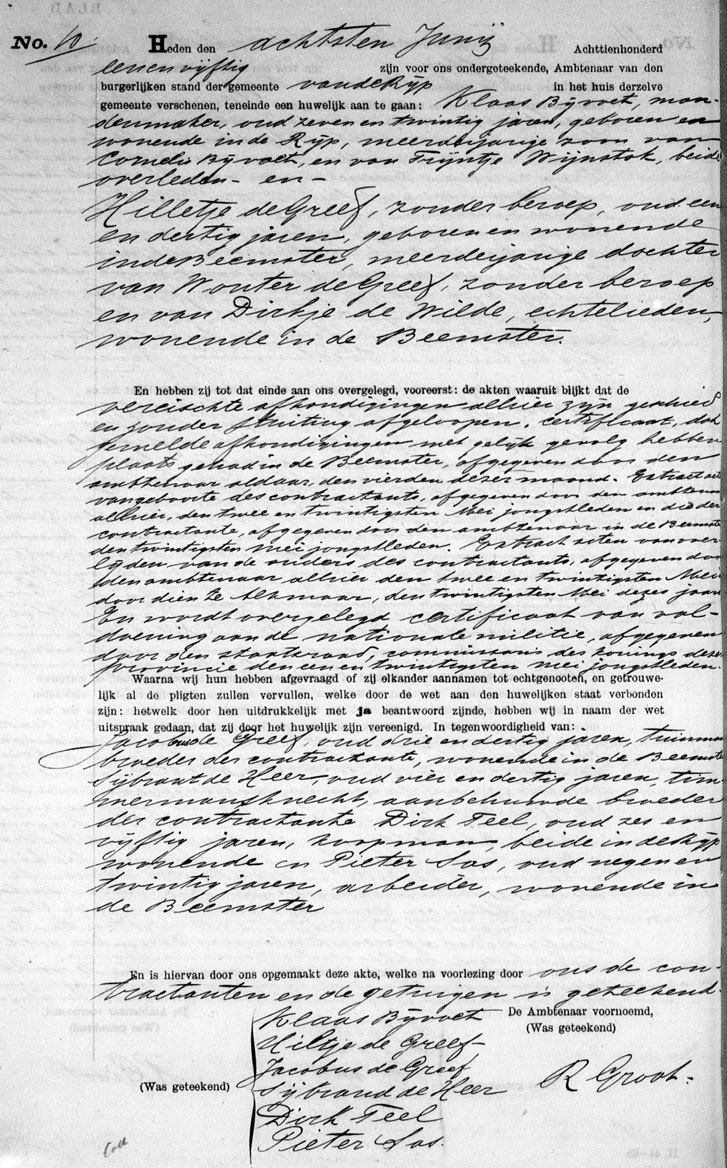 No. 10. Heden den achtsten Junij Achttienhonderd
eenenvijftig zijn voor ons ondergeteekende, Ambtenaar van den
burgerlijken stand der gemeente vandeRijp in het huis derzelve
gemeente verschenen, teneinde een huwelijk aan te gaan: Klaas Bijvoet, man-
denmaker, oud zeven en twintig jaren, geboren en
wonende in de Rijp, meerderjarige zoon van
Cornelis Bijvoet, en van Trijntje Wijnstok, beide
overleden - en -
Hilletje de Greef, zonder beroep, oud een
en dertig jaren, geboren en wonende
in de Beemster, meerderjarige dochter
van Wouter de Greef, zonder beroep
en van Dirkje de Wilde, echtelieden,
wonende in de Beemster.
En hebben zij tot dat einde aan ons overgelegd, vooreerst: de akten waaruit blijkt dat de
vereischte afkondigingen alhier zijn geschied
en zonder stuiting afgeloopen. Certificaat, dat
gemelde afkondigingen met gelijk gevolg hebben
plaats gehad in de Beemster, afgegeven door den
ambtenaar aldaar, den vierden dezer maand. Extract uit
van geboorte des contractants, afgegeven door den ambtenaar
alhier, den twee en twintigsten Mei jongstleden en die der
contractante, afgegeven door den ambtenaar in de Beemster
den twintigsten Mei jongstleden. Extract acten van over-
lijden van de ouders des contractants, afgegeven door
den ambtenaar alhier den twee en twintigsten Mei
door dien te Alkmaar, den twintigsten Mei dezes jaars
En wordt overgelegd certificaat van vol-
doening aan de nationale militie, afgegeven
door den staatsraad, commissaris des konings dezer
provincie den een en twintigsten Mei jongstleden.
Waarna wij hun hebben afgevraagd of zij elkander aannamen tot echtgenooten, en getrouwe-
lijk al de pligten zullen vervullen, welke door de wet aan den huwelijken staat verbonden
zijn: hetwelk door hen uitdrukkelijk met ja beantwoord zijnde, hebben wij in naam der wet
uitspraak gedaan, dat zij door het huwelijk zijn vereenigd. In tegenwoordigheid van:
Jacobus de Greef, oud drie en dertig jaren, tuinman
broeder der contractante, wonende in de Beemster
Sijbrant de Heer, oud vier en dertig jaren, tim-
mermansknecht, aanbehuwde broeder
der contractante Dirk Teel, oud zes en
vijftig jaren, koopman, beide in de Rijp
wonende en Pieter Sas, oud negen en
twintig jaren, arbeider, wonende in
de Beemster
En is hiervan door ons opgemaakt deze akte, welke na voorlezing door ons de con-
tractanten en de getuigen is geteekend.
Klaas Bijvoet De Ambtenaar voornoemd,
Hiltje de Greef (Was geteekend)
Jacobus de Greef
(Was geteekend) Sijbrand de Heer R Groot.
Dirk Teel
Pieter Sas.